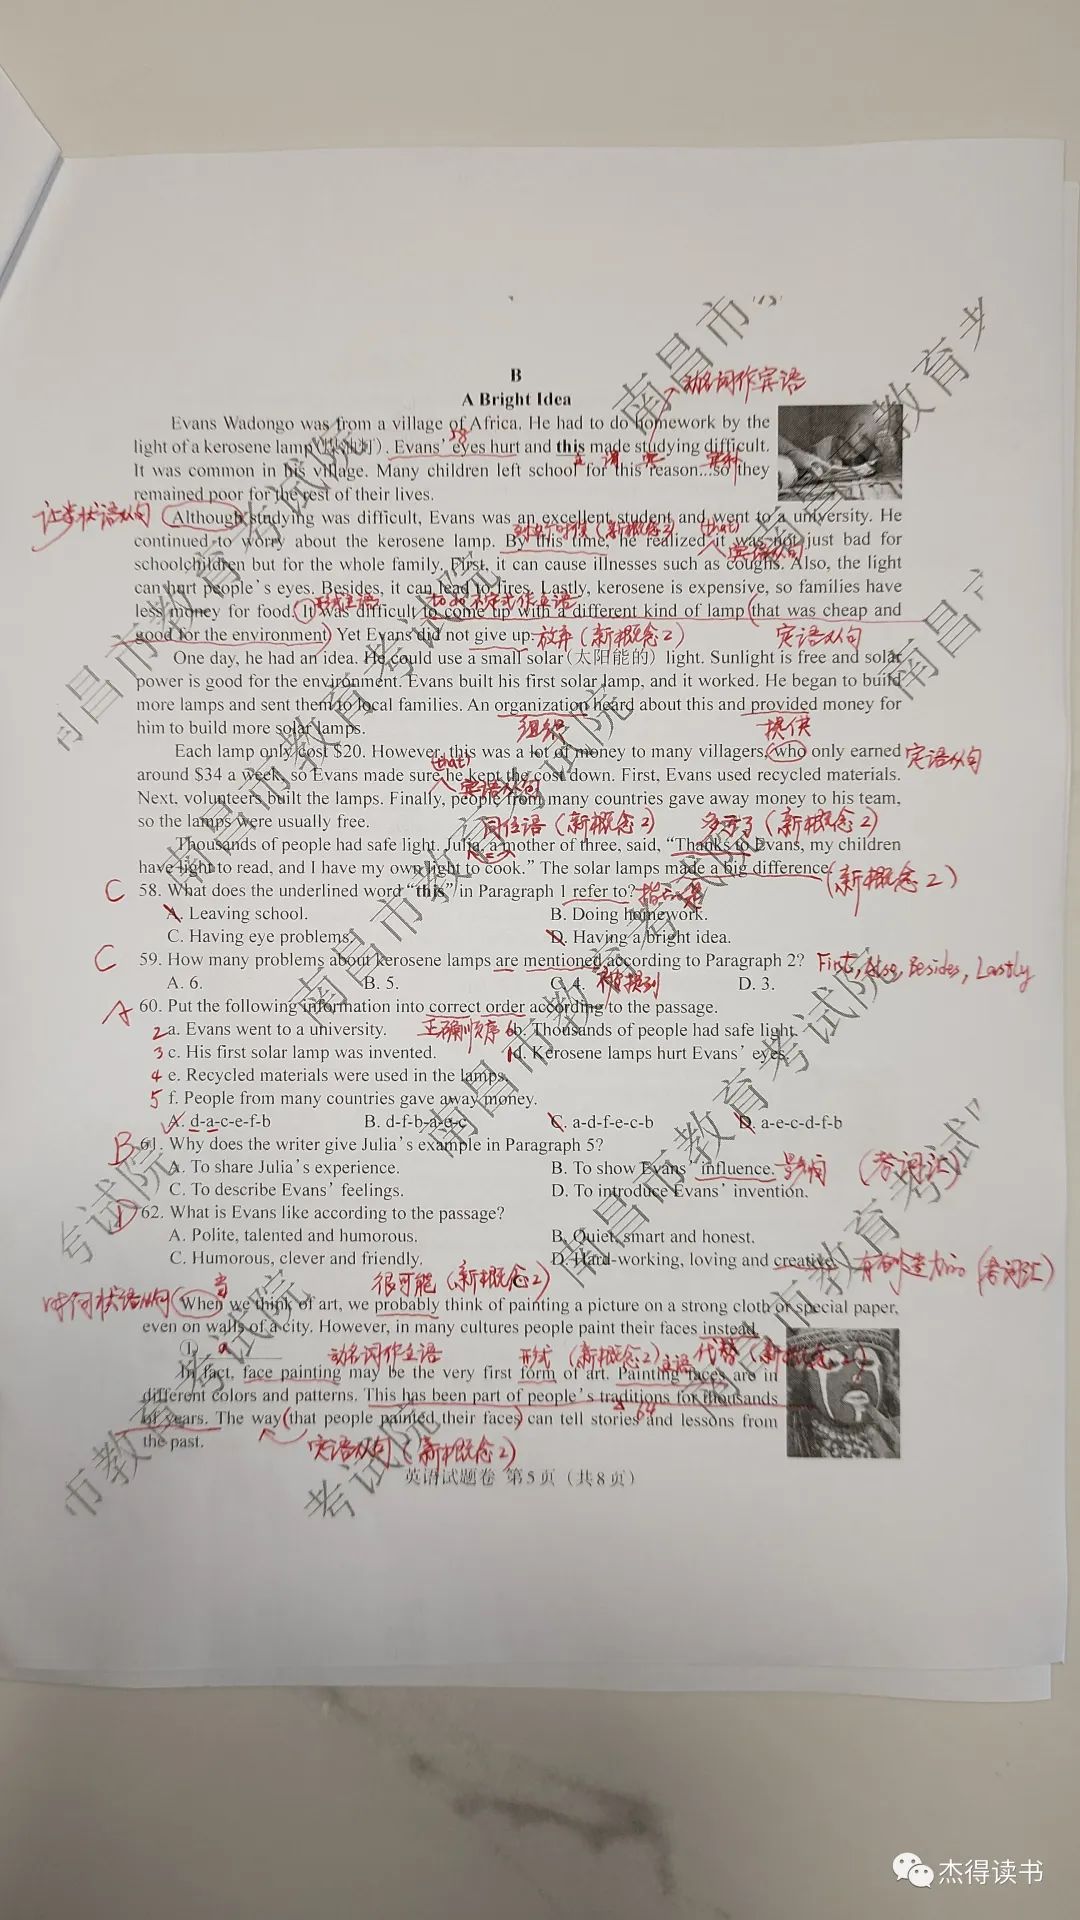 B
A Bright Idea
动名词作宾语
Evans Wadongo was from a village of Africa. He had to do homework by the
light of a kerosene lamp(煤油灯). Evans' eyes hurt and this made studying difficult.
58
主 谓 宾 宾补
It was common in his village. Many children left school for this reason...so they
remained poor for the rest of their lives.
让步状语从句
Although studying was difficult, Evans was an excellent student and went to a university. He
到这个时候(新概念3) (that)
continued to worry about the kerosene lamp. By this time, he realized it was not just bad for
宾语从句
schoolchildren but for the whole family. First, it can cause illnesses such as coughs. Also, the light
can hurt people's eyes. Besides, it can lead to fires. Lastly, kerosene is expensive, so families have
形式主语 to do 不定式作主语
less money for food. It was difficult to come up with a different kind of lamp (that was cheap and
good for the environment) Yet Evans did not give up. 放弃(新概念2) 定语从句
One day, he had an idea. He could use a small solar(太阳能的) light. Sunlight is free and solar
power is good for the environment. Evans built his first solar lamp, and it worked. He began to build
more lamps and sent them to local families. An organization heard about this and provided money for
him to build more solar lamps. 组织 提供
Each lamp only cost $20. However, this was a lot of money to many villagers, who only earned 定语从句
(that)
around $34 a week, so Evans made sure he kept the cost down. First, Evans used recycled materials.
宾语从句
Next, volunteers built the lamps. Finally, people from many countries gave away money to his team,
so the lamps were usually free. 同位语(新概念2) 多亏了(新概念2)
Thousands of people had safe light. Julia, a mother of three, said, "Thanks to Evans, my children
have light to read, and I have my own light to cook." The solar lamps made a big difference. (新概念2)
C 58. What does the underlined word "this" in Paragraph 1 refer to? 指的是
A. Leaving school. B. Doing homework.
C. Having eye problems. D. Having a bright idea.
C 59. How many problems about kerosene lamps are mentioned according to Paragraph 2? First, Also, Besides, Lastly
A. 6. B. 5. C. 4. 被提到 D. 3.
A 60. Put the following information into correct order according to the passage.
2 a. Evans went to a university. 正确顺序 6 b. Thousands of people had safe light.
3 c. His first solar lamp was invented. 1 d. Kerosene lamps hurt Evans' eyes.
4 e. Recycled materials were used in the lamps.
5 f. People from many countries gave away money.
A. d-a-c-e-f-b B. d-f-b-a-e-c C. a-d-f-e-c-b D. a-e-c-d-f-b
B 61. Why does the writer give Julia's example in Paragraph 5?
A. To share Julia's experience. B. To show Evans' influence. 影响 (考词汇)
C. To describe Evans' feelings. D. To introduce Evans' invention.
D 62. What is Evans like according to the passage?
A. Polite, talented and humorous. B. Quiet, smart and honest.
C. Humorous, clever and friendly. D. Hard-working, loving and creative. 有创造力的(考词汇)
当 很可能(新概念2)
时间状语从句 When we think of art, we probably think of painting a picture on a strong cloth or special paper,
even on walls of a city. However, in many cultures people paint their faces instead.
① 动名词作主语 形式(新概念2) 主语 代替(新概念2)
In fact, face painting may be the very first form of art. Painting faces are in
different colors and patterns. This has been part of people's traditions for thousands
64
of years. The way (that people painted their faces) can tell stories and lessons from
the past. 定语从句(新概念2)
英语试题卷 第5页(共8页)
南昌市教育考试院
杰得读书